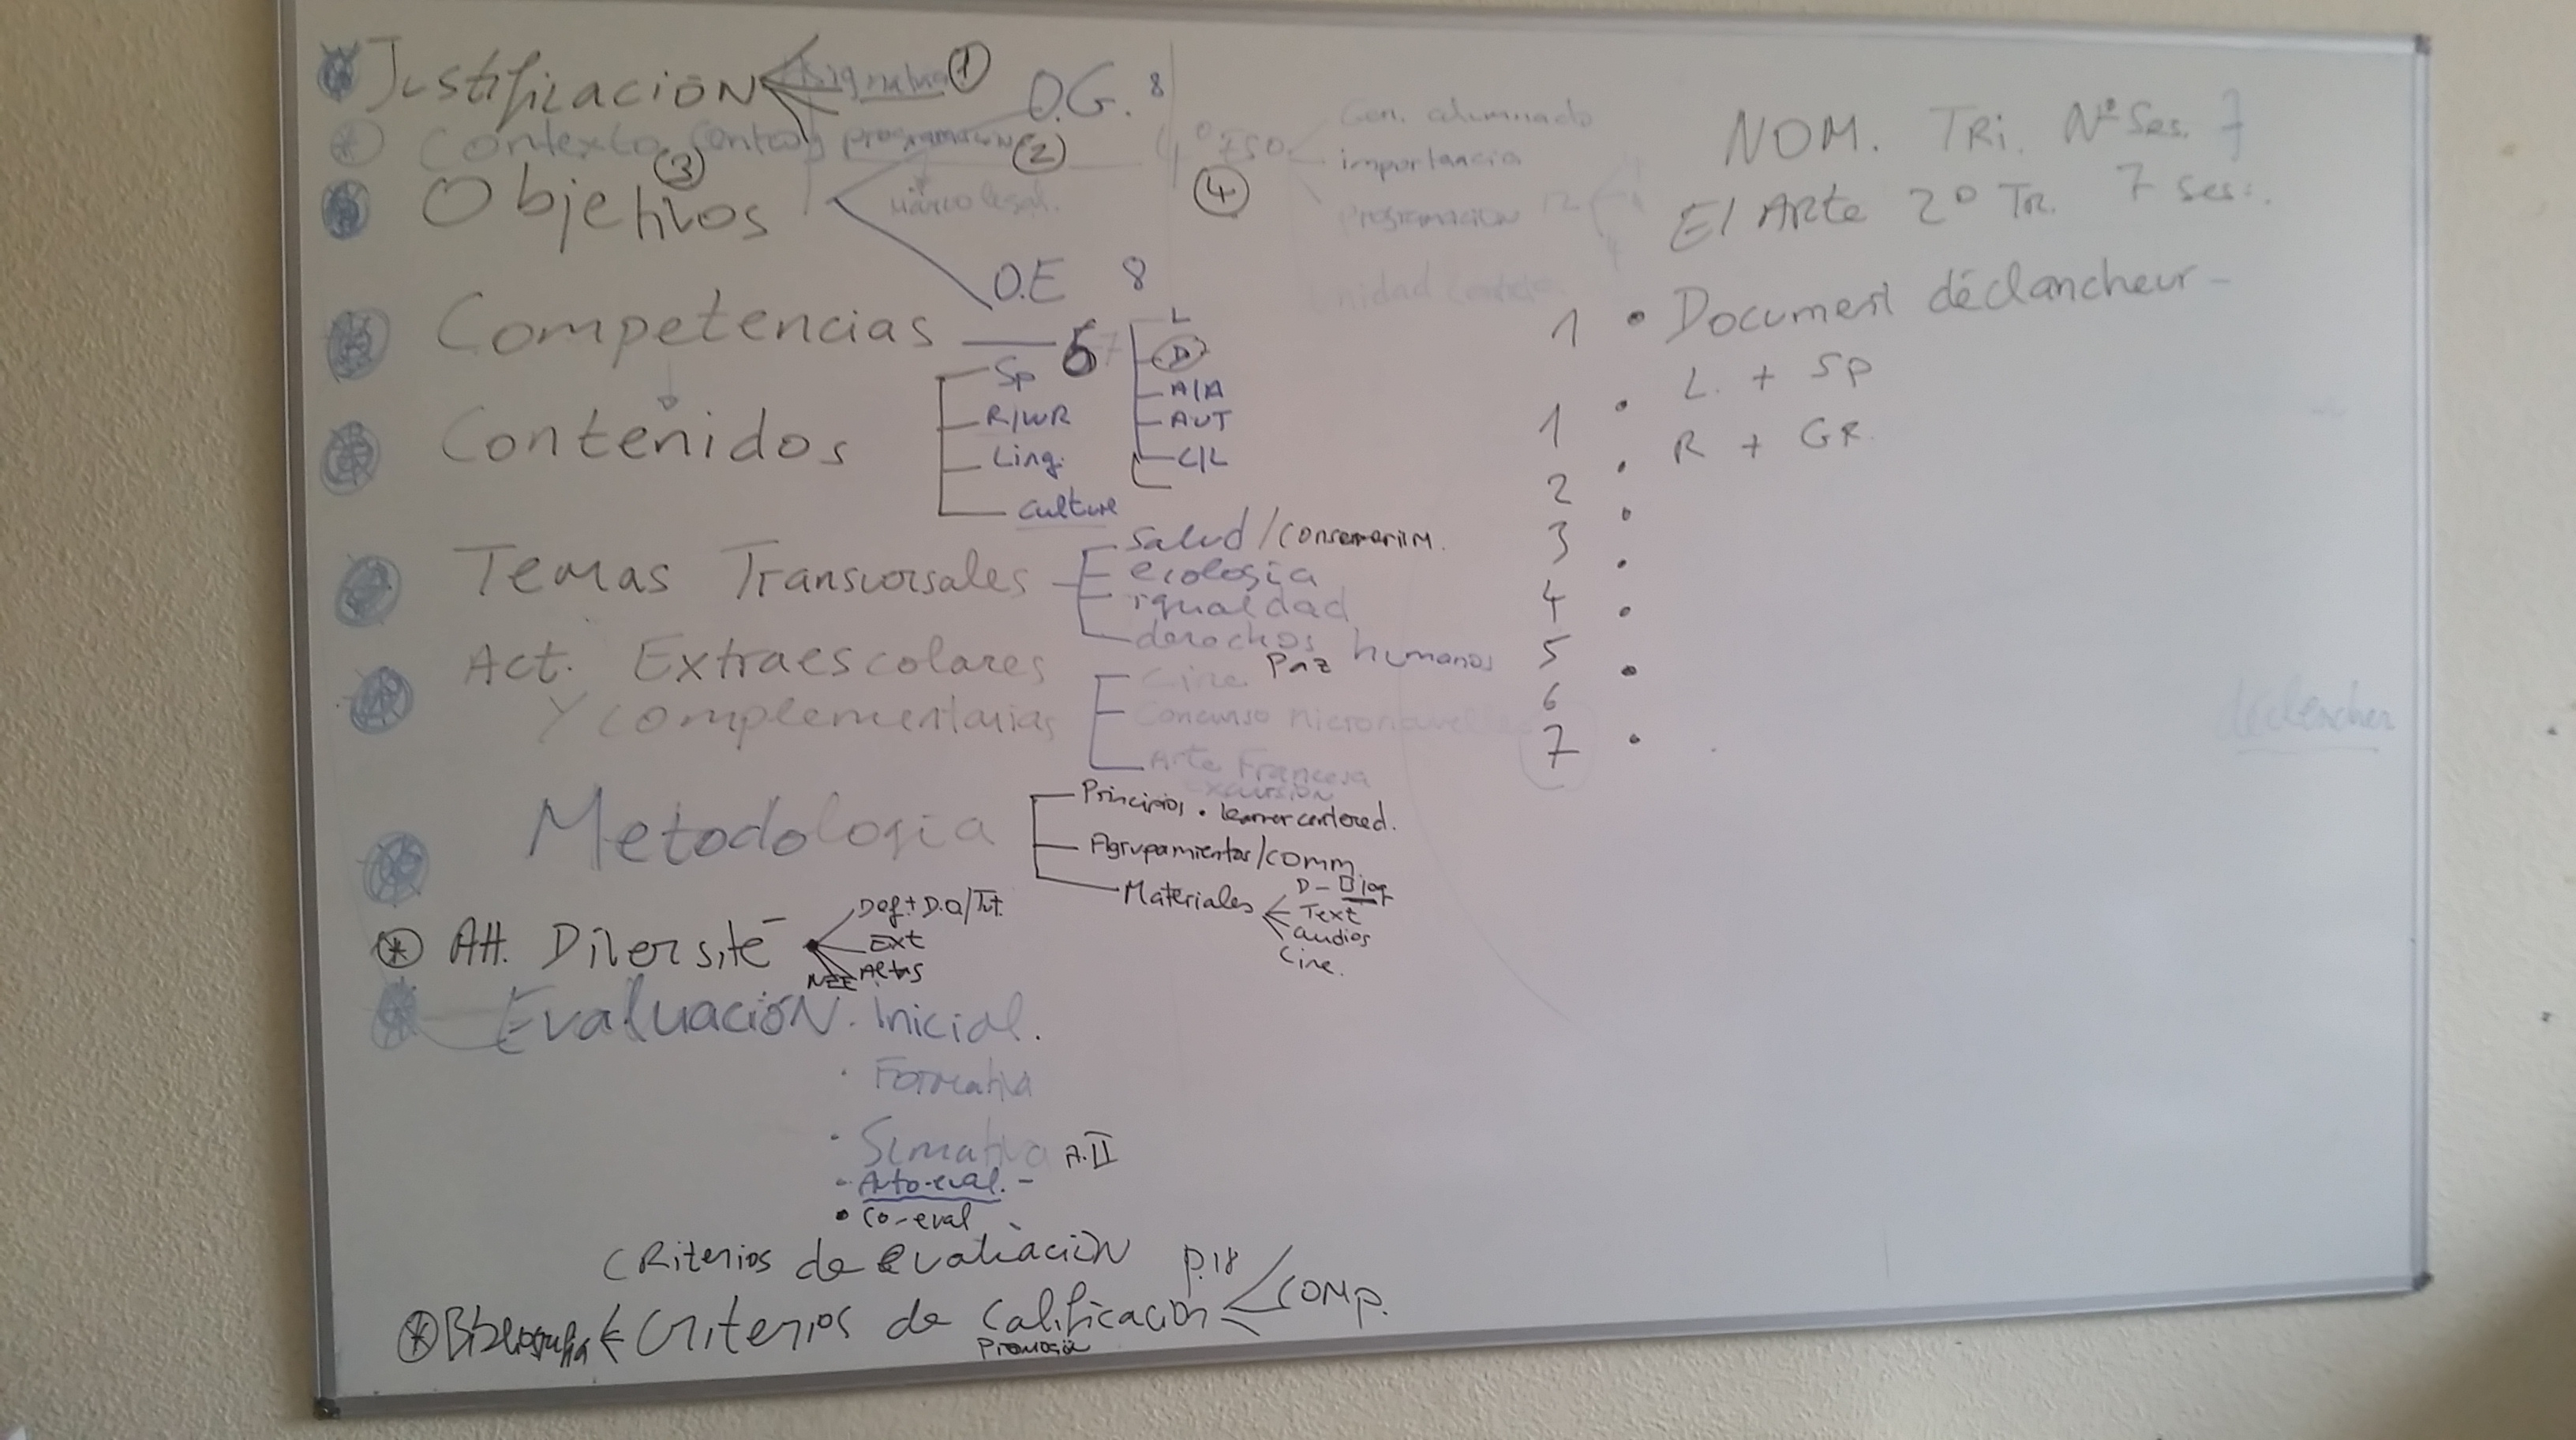 Justificación Asignatura 1
O.G. 8
Contexto Centro programación 2
3
4º ESO
4
Gen. alumnado
importancia
Programación 12
marco legal.
Objetivos
O.E 8
Competencias 6 7
L
D
A/A
AUT
C/L
Contenidos
Sp
R/WR
Ling.
Culture
Temas Transversales
Salud /
ecologia
igualdad
derechos humanos
Paz
Act. Extraescolares
Y complementarias
Cine
Concurso
Arte Francesa
excursión
Metodologia
Principios • learner centered.
Agrupamientos/comm
Materiales
D-
Text
audios
Cine.
Att. Diversité
Ext
Altas
NEE
Evaluación. Inicial.
• Formativa
• Sumativa A.II
- Auto-eval. -
• Co-eval
Criterios de evaluación
P.18
Criterios de Calificación
COMP.
NOM. TRi. Nº Ses. 7
El Arte 2º TR. 7 ses.
1 • Document déclancheur -
L. + Sp
1 •
R + GR.
2 •
3 •
4 •
5 •
6 •
7 •
déclencher